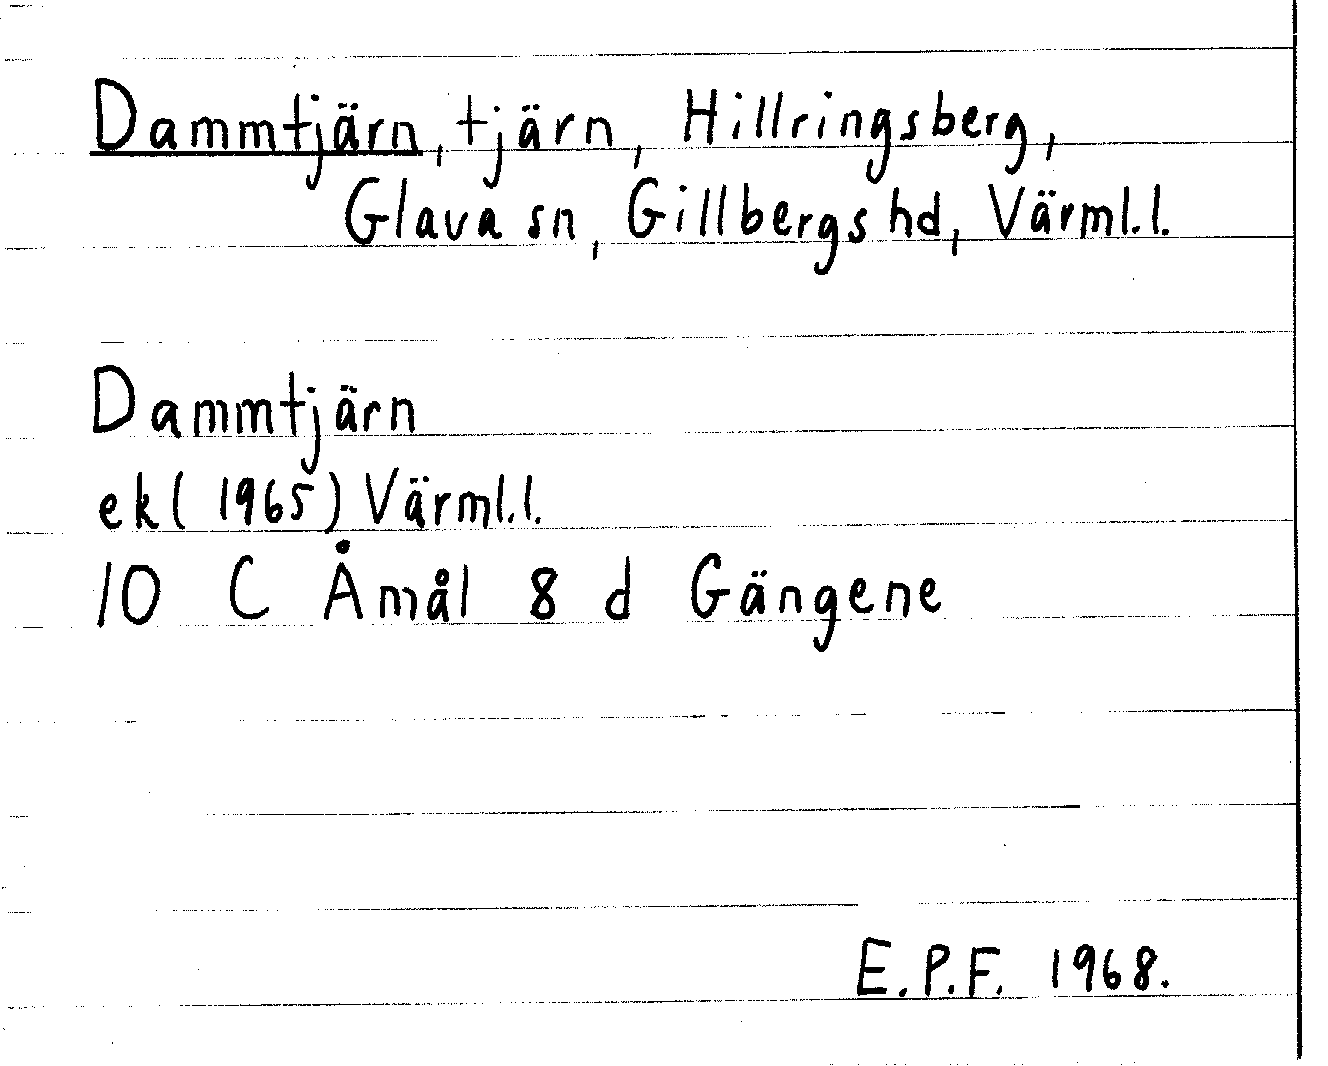 Dammtjärn, tjärn, Hillringsberg,
Glava sn, Gillbergs hd, Värml.l.
Dammtjärn
ek (1965) Värml.l.
10 C Åmål 8 d Gängene
E.P.F. 1968.